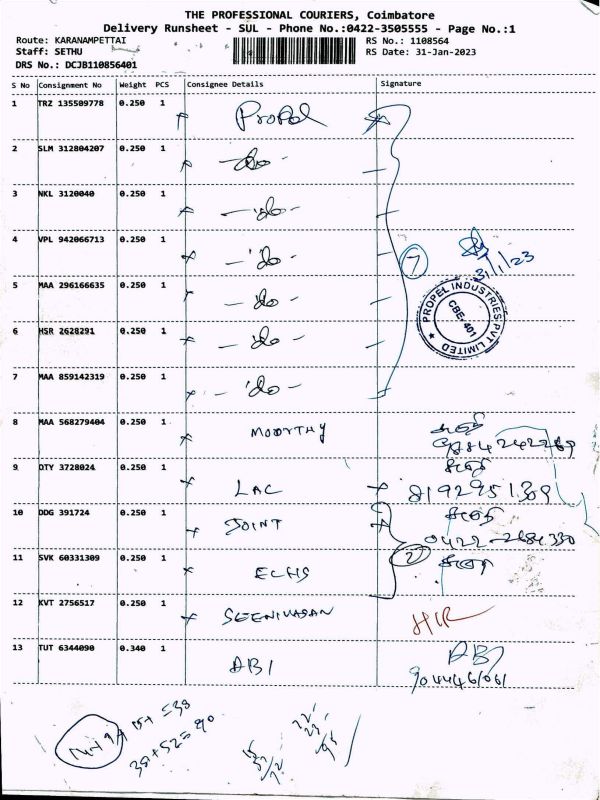 THE PROFESSIONAL COURIERS, Coimbatore
Delivery Runsheet - SUL - Phone No.:0422-3505555 - Page No.:1
Route: KARANAMPETTAI
RS No.: 1108564
Staff: SETHU
RS Date: 31-Jan-2023
DRS No.: DCJB110856401
S No Consignment No Weight PCS Consignee Details Signature
1 TRZ 135509778 0.250 1 Propel
2 SLM 312804207 0.250 1 -do-
3 NKL 3120040 0.250 1 -do-
4 VPL 942066713 0.250 1 -do-
7
31/1/23
5 MAA 296166635 0.250 1 -do-
PROPEL INDUSTRIES PVT LIMITED
CBE-401
6 HSR 2628291 0.250 1 -do-
7 MAA 859142319 0.250 1 -do-
8 MAA 568279404 0.250 1 MOORTHY
9 DTY 3728024 0.250 1 LAC
8192951309
10 DDG 391724 0.250 1 JOINT
11 SVK 60331309 0.250 1 ECHS
2
12 KVT 2756517 0.250 1 SEENIVASAN
13 TUT 6344090 0.340 1 ABI
ABI
9044461061
38+52=90